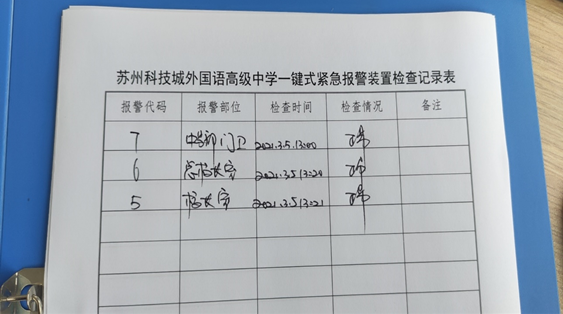 苏州科技城外国语高级中学一键式紧急报警装置检查记录表
报警代码 报警部位 检查时间 检查情况 备注
7 中学部门卫 2021.3.5.13:00 正常
6 总校长室 2021.3.5 13:20 正常
5 校长室 2021.3.5 13:21 正常